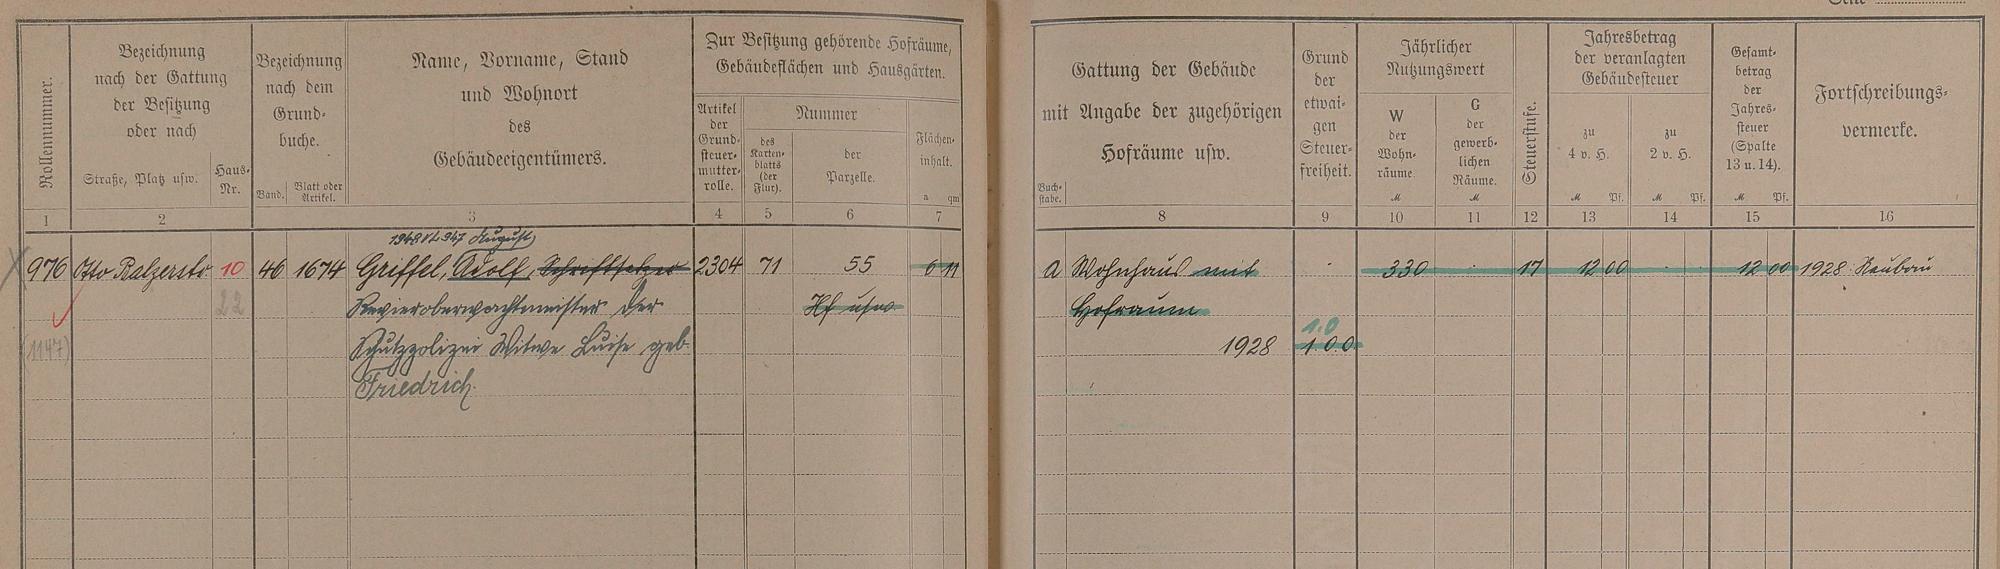 Seite
Rollennummer.
Bezeichnung
nach der Gattung
der Besitzung
oder nach
Straße, Platz usw.
Haus-
Nr.
Bezeichnung
nach dem
Grund-
buche.
Band.
Blatt oder
Artikel.
Name, Vorname, Stand
und Wohnort
des
Gebäudeeigentümers.
Zur Besitzung gehörende Hofräume,
Gebäudeflächen und Hausgärten.
Artikel
der
Grund-
steuer-
mutter-
rolle.
Nummer
des
Karten-
blatts
(der
Flur).
der
Parzelle.
Flächen-
inhalt.
a qm
Buch-
stabe.
Gattung der Gebäude
mit Angabe der zugehörigen
Hofräume usw.
Grund
der
etwai-
gen
Steuer-
freiheit.
Jährlicher
Nutzungswert
W
der
Wohn-
räume.
M
G
der
gewerb-
lichen
Räume.
M
Steuerstufe.
Jahresbetrag
der veranlagten
Gebäudesteuer
zu
4 v. H.
M Pf.
zu
2 v. H.
M Pf.
Gesamt-
betrag
der
Jahres-
steuer
(Spalte
13 u. 14).
M Pf.
Fortschreibungs-
vermerke.
1 2 3 4 5 6 7 8 9 10 11 12 13 14 15 16
1948 947 August
976 Otto Balzerstr. 10 46 1674 Griffel, Adolf, Schriftsetzer 2304 71 55 6 11 a Wohnhaus mit 330 17 12 00 12 00 1928 Neubau
22 Revieroberwachtmeister der Hf usw Hofraum
(1147) Schutzpolizei Witwe Luise geb. 1928 1.0 1.0.0
Friedrich.